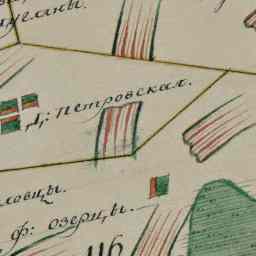 Д: Петровская.
ловцы.
ф: озерцы.
116